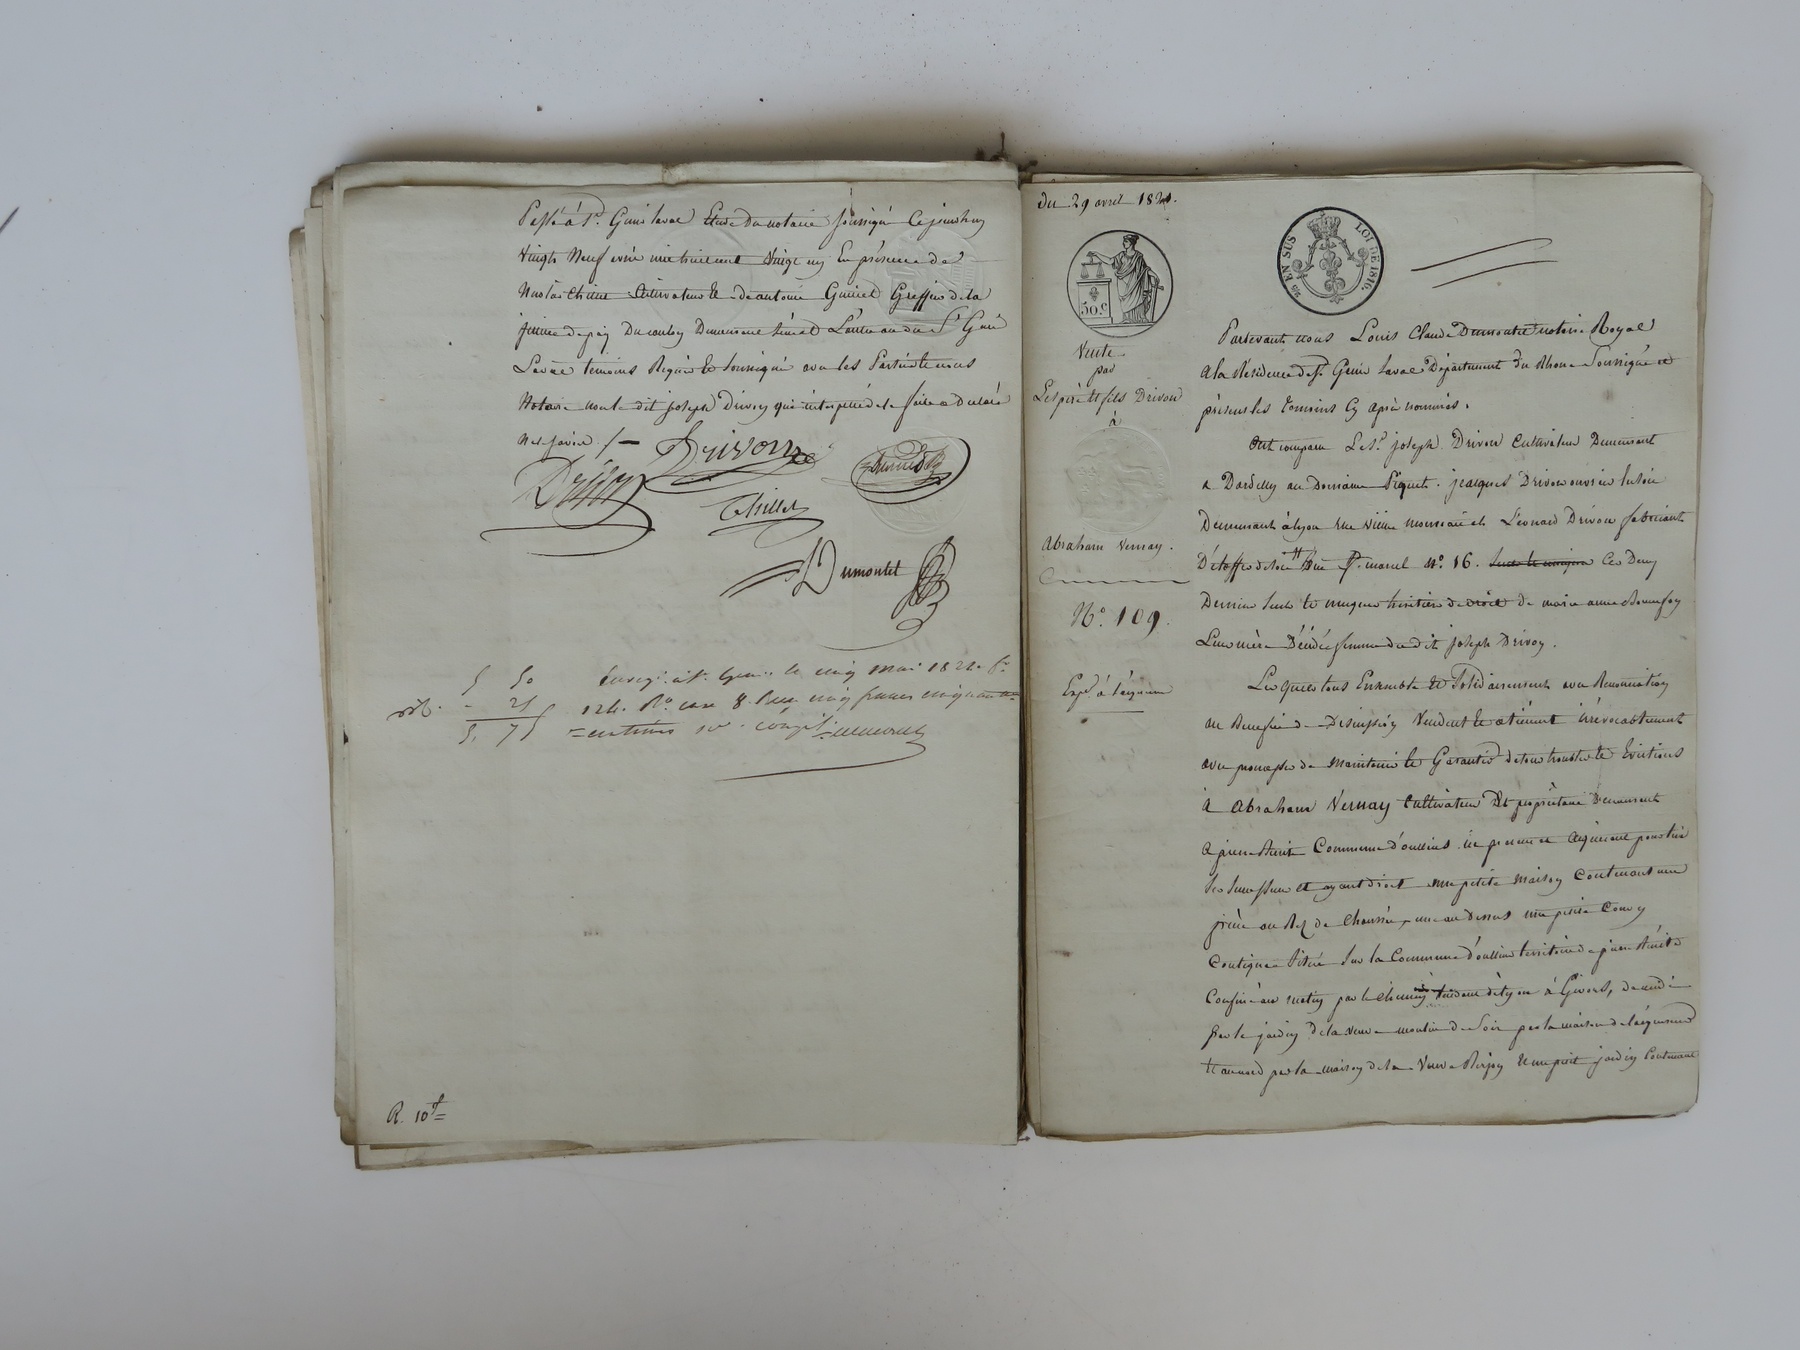 Passé à St. Genis laval Etude du notaire soussigné Cejourdhuy
Vingt Neuf avril mil huit cent Vingt un En présence de
Nicolas Thillet Cultivateur et de antoine Guiniel Greffier de la
justice de paix Du canton Demeurant
Laval temoins Requis et Soussignés avec les Parties et nous
Notaire non le dit joseph Drivon qui interpellé de le faire a Déclaré
Ne Savoir ./.
Drivon
Drivon
Thillet
Dumontet
5 50
- 25
5. 75
Enreg. à St. Genis le cinq mai 1821. fo.
124. Ro. case 8. Reçu cinq francs cinquante
centimes
R. 10f
du 29 avril 1821.
50 c.
25 EN SUS
LOI DE 1816.
Vente
par
Les père et fils Drivon
à
Abraham Vernay.
No. 109.
Expé. à l'acquéreur
Pardevant nous Louis Claude Dumontet notaire Royal
A la Résidence de St. Genis Laval Département du Rhone Soussigné et
présens les temoins Cy après nommés.
Ont comparu Le Sr. joseph Drivon Cultivateur Demeurant
a Dardilly au Domaine Piquet. jacques Drivon ouvrier en soie
Demeurant à lyon rue vieille monnaie et Léonard Drivon fabricant
D'étoffes de soie Rue St. marcel No. 16. Ces Deux
Derniers seuls et uniques héritiers de droit de marie anne Bonnefoy
Leur mère Décédée femme du dit joseph Drivon.
Lesquels tous Ensemble et Solidairement avec Renonciation
au Benefice de Division Vendent et cèdent irrévocablement
avec promesse de Maintenir et Garantir de tous troubles et Evictions
à Abraham Vernay Cultivateur Et propriétaire Demeurant
a pierre Bénite Commune d'oullins ici present et acquereur pour lui
Ses Successeurs et ayant droit une petite Maison Contenant une
pièce au Rez de Chaussée, une au dessus une petite Cour y
Contigue Située Sur la Commune d'oullins territoire de pierre Bénite
Confinée au matin par le chemin tendant de lyon à Givors, de midi
par le jardin de la veuve moulin de Soir par la maison de l'acquereur
et au nord par la maison de la Veuve Et un petit jardin Contenant